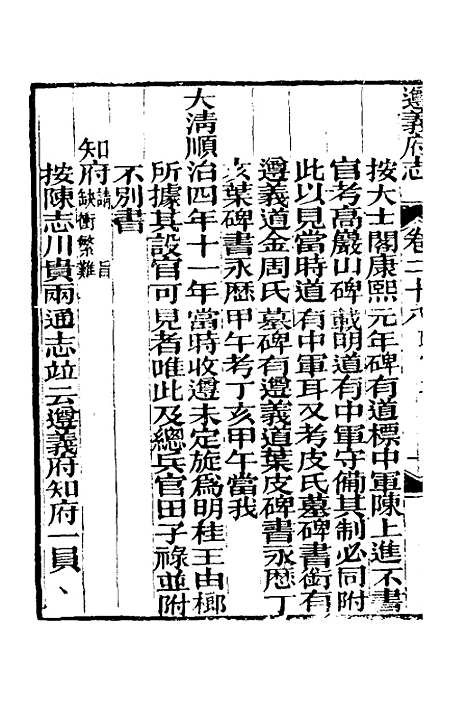 遵義府志 卷二十八
按大士閣康熙元年碑有道標中軍陳上進不書
官考高巖山碑載明道有中軍守備其制必同附
此以見當時道有中軍耳又考皮氏墓碑書銜有
遵義道金周氏墓碑有遵義道葉皮碑書永歷丁
亥葉碑書永歷甲午考丁亥甲午當我
大清順治四年十一年當時收遵未定旋為明桂王由榔
所據其設官可見者唯此及總兵官田子祿並附
不別書
知府請旨缺衝繁難
按陳志川貴兩通志竝云遵義府知府一員、